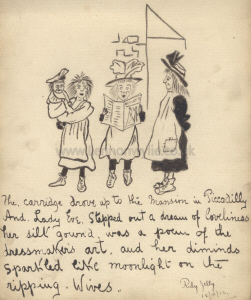 The, carridge drove up to the Mansion in Piccadilly
And. Lady Eve. Stepped out a dream of loveliness
her silk gound, was a poem of the
dressmakers art, and her diminds
sparkled like moonlight on the
ripping. Wives.